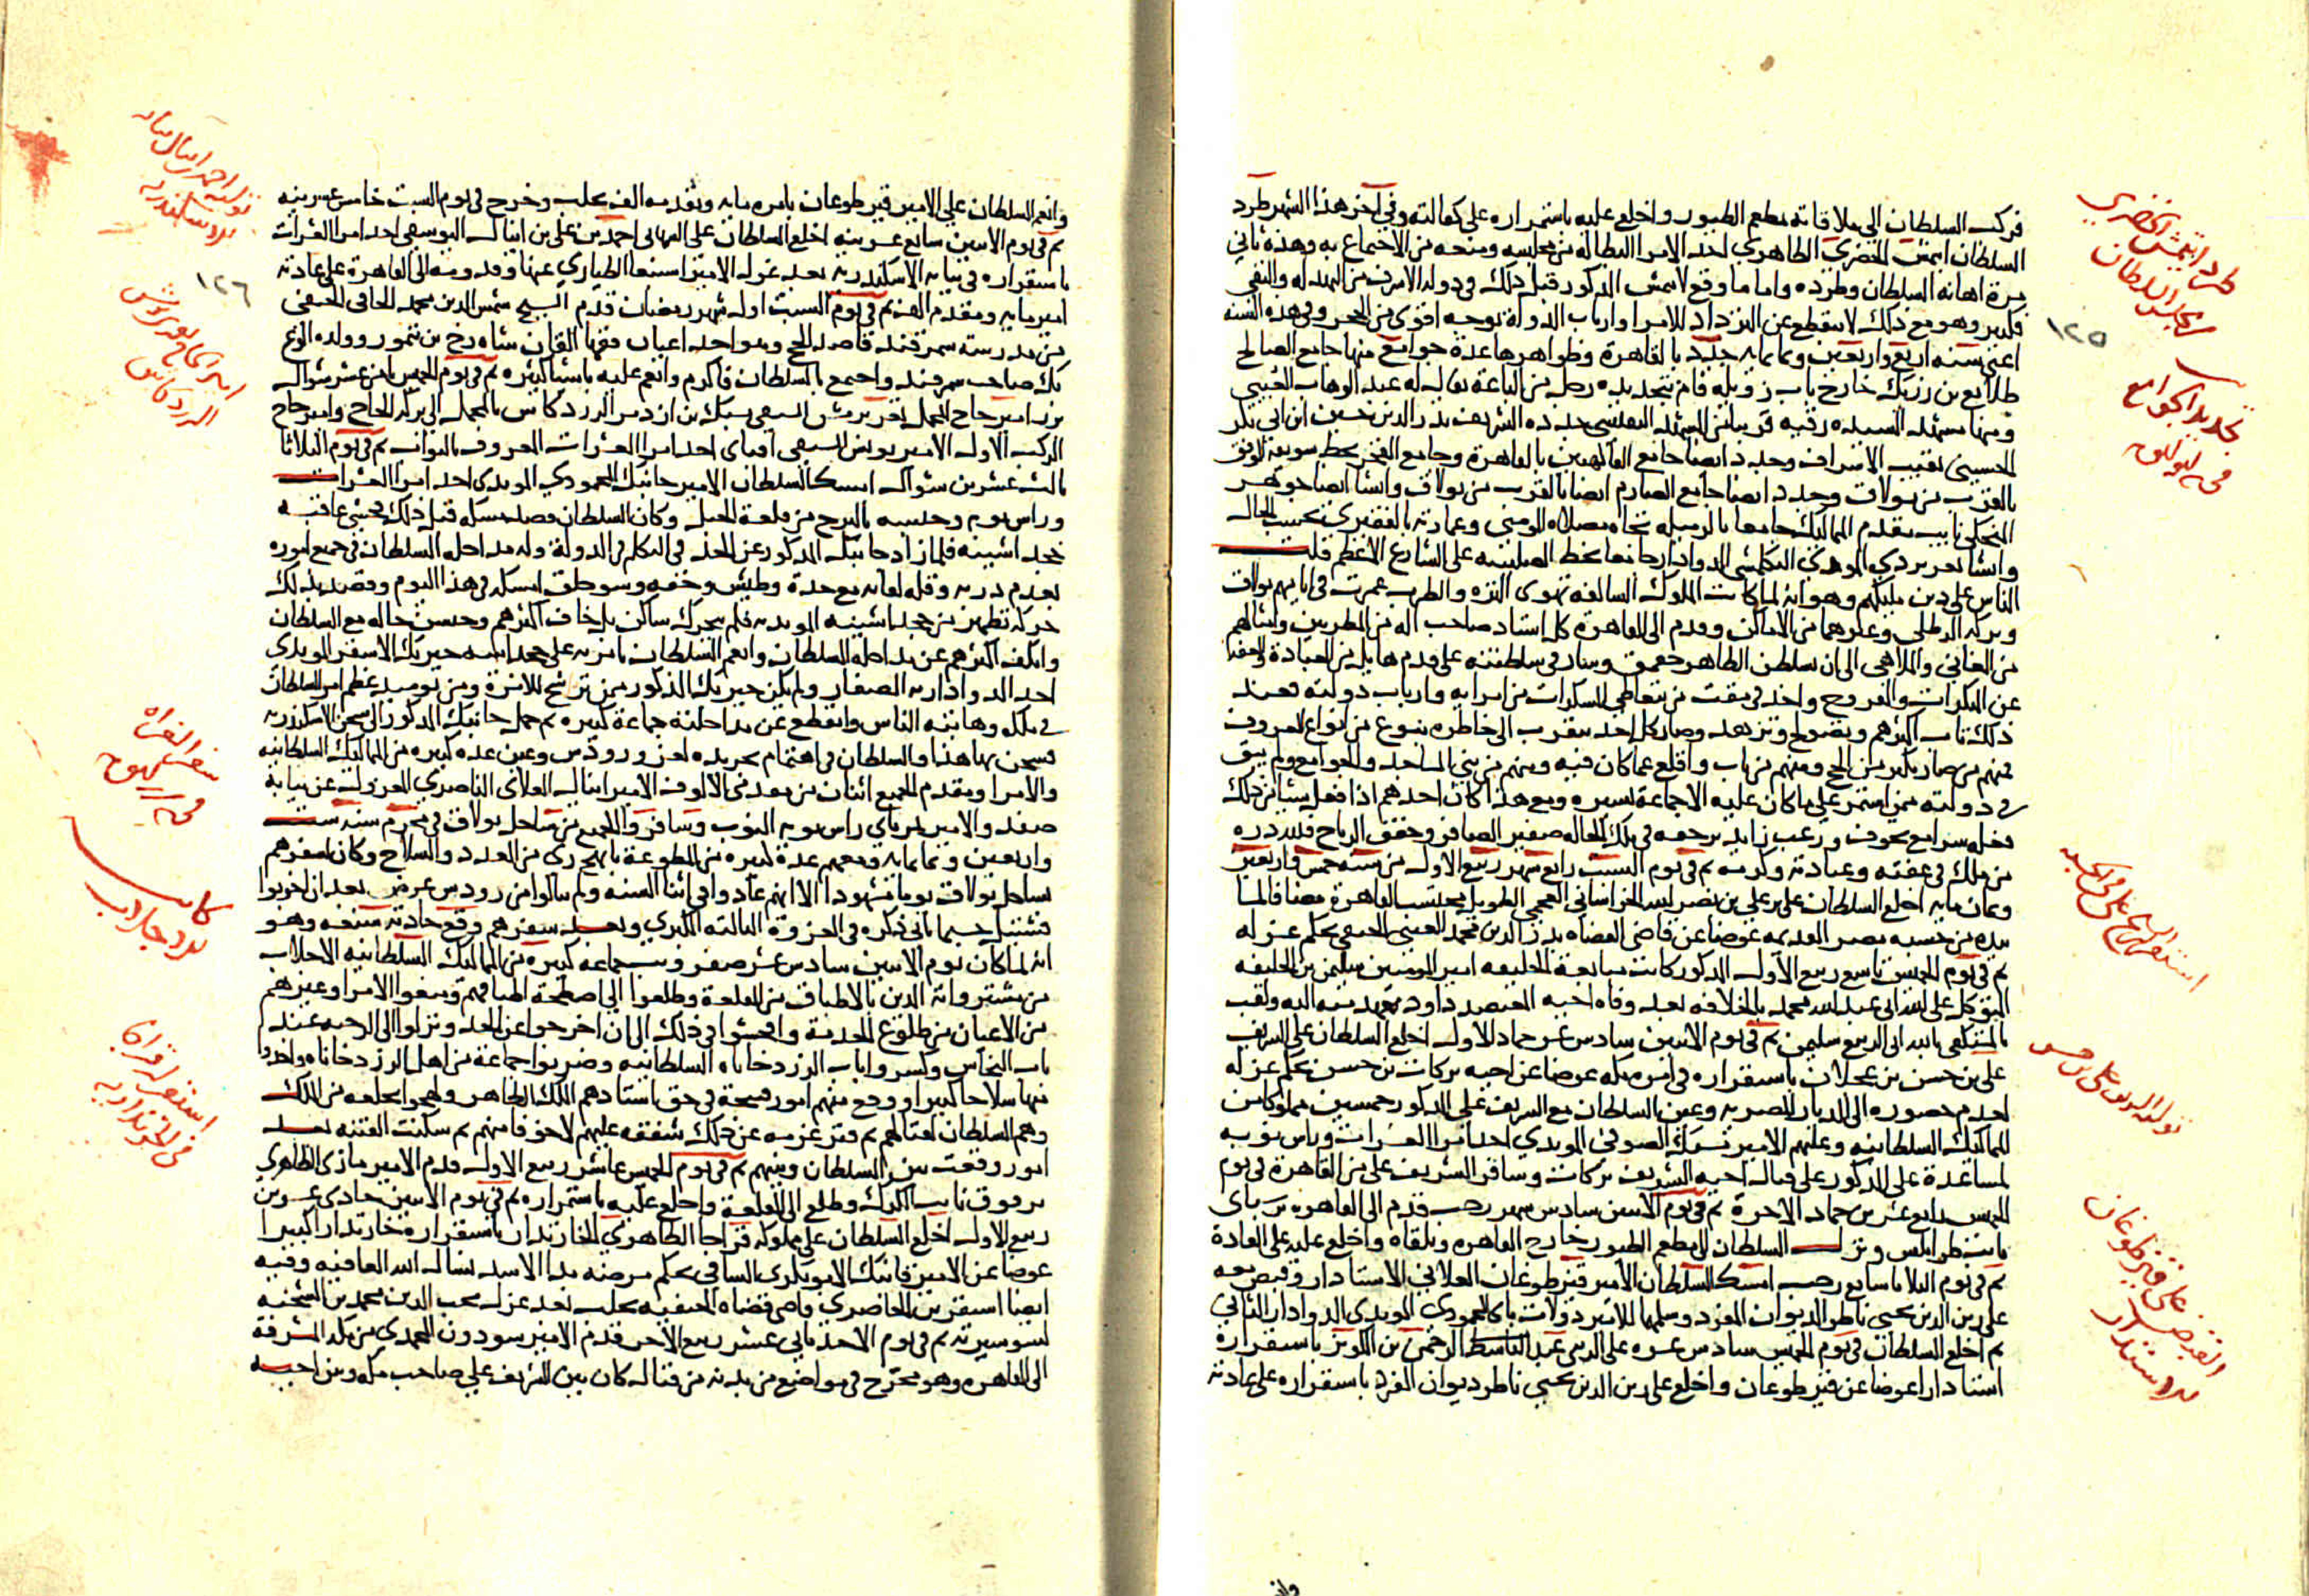 فركب السلطان الى ملاقاته بمطعم الطيور واخلع عليه باستمراره على كفالته وفي آخر هذا الشهر طرد
السلطان ايتمش الخضري الظاهري احد الامرا البطاله من مجلسه ومنعه من الاجتماع به وهذه ثاني
مرة اهانه السلطان وطرده واما ما وقع لايتمش المذكور قبل ذلك في دولة الاشرف من البهدله والنفي
فكثير وهو مع ذلك لا ينقطع عن الترداد للامرا وارباب الدولة بوجه اقوى من الحجر وفي هذه السنه
اعني سنه اربع واربعين وثمانمايه جدد بالقاهرة وظواهرها عدة جوامع منها جامع الصالح
طلايع بن رزيك خارج باب زويله قام بتجديده رجل من الباعة يقال له عبد الوهاب العيني
ومنها مشهد السيده رقيه قريبا من المشهد النفيسي جدده الشريف بدر الدين حسين ابن ابي بكر
الحسيني نقيب الاشراف وجدد ايضا جامع الفاكهيين بالقاهرة وجامع الفخر بخط سويقة الموفق
بالقرب من بولاق وجدد ايضا جامع الصارم ايضا بالقرب من بولاق وانشا ايضا جوهر
المنجكي نايب مقدم المماليك جامعا بالرميله تجاه مصلاة المومني وعمارته بالفقيري بحسب الحال
وانشا تغري بردي الموذي البكلمشي الدوادار جامعا بخط الصليبيه على الشارع الاعظم قلت
الناس على دين مليكهم وهو انه لما كانت الملوك السالفة تهوى النزه والطرب عمرت في ايامهم بولاق
وبركة الرطلي وغيرهما من الاماكن وقدم الى القاهرة كل استاد صاحب اله من المطربين وامثالهم
من المغاني والملاهي الى ان تسلطن الظاهر جقمق وسار في سلطنته على قدم هايل من العبادة والعفة
عن المنكرات والفروج واخد في مقت من يتعاطى المسكرات من امرايه وارباب دولته فعند
ذلك تاب اكثرهم وتصولح وتزهد وصار كل احد يتقرب الى خاطره بنوع من انواع المعروف
فمنهم من صار يكثر من الحج ومنهم من تاب واقلع عما كان فيه ومنهم من بنى المساجد والجوامع ولم يبق
في دولته ممن استمر على ما كان عليه الا جماعة يسيره ومع هذا كان احدهم اذا فعل شيا من ذلك
فعله سرا مع خوف ورعب زايد يرجفه في تلك الحاله صفير الصافر وخفق الرياح فلله دره
من ملك في عفته وعبادته وكرمه ثم في يوم السبت رابع شهر ربيع الاول من سنه خمس واربعين
وثمانمايه اخلع السلطان على علي بن نصر الله الخراساني العجمي الطويل محتسب القاهرة مضافا لما
بيده من حسبه مصر القديمه عوضا عن قاضي القضاه بدر الدين محمد العيني الحنفي بحكم عزله
ثم في يوم الخميس تاسع ربيع الاول المذكور كانت مبايعة الخليفه امير المومنين سليمن بن الخليفه
المتوكل على الله ابي عبد الله محمد بالخلافه بعد وفاة اخيه المعتضد داود بعهد منه اليه ولقب
بالمستكفي بالله ابي الربيع سليمن ثم في يوم الاثنين سادس عشر جماد الاول اخلع السلطان على الشريف
علي بن حسن بن عجلان باستقراره في امره مكه عوضا عن اخيه بركات بن حسن بحكم عزله
لعدم حضوره الى الديار المصريه وعين السلطان مع الشريف علي المذكور خمسين مملوكا من
المماليك السلطانيه وعليهم الامير يشبك الصوفي المويدي احد امرا العشرات وراس نوبه
لمساعدة علي المذكور على قتال اخيه الشريف بركات وسافر الشريف علي من القاهرة في يوم
الخميس رابع عشرين جماد الاخرة ثم في يوم الاثنين سادس شهر رجب قدم الى القاهره برسباي
نايب طرابلس ونزل السلطان الى مطعم الطيور خارج القاهره وتلقاه واخلع عليه على العادة
ثم في يوم الثلاثا سابع رجب امسك السلطان الامير قيزطوغان العلائي الاستادار وقبض معه
على زين الدين يحيى ناظر الديوان المفرد وسلمها للامير دولات باي المحمودي المويدي الدوادار الثاني
ثم اخلع السلطان في يوم الخميس سادس عشره على الزيني عبد الرحمن بن الكويز باستقراره
استادارا عوضا عن قيزطوغان واخلع على زين الدين يحيى ناظر ديوان المفرد باستقراره على عادته
طرد ايتمش الخضري
من مجلس السلطان
١٢٥
تجديد الجوامع
تولية الشريف علي بن حسن
القبض على قيزطوغان
وانعم السلطان على الامير قيزطوغان بامره مايه وتقدمه الف بحلب وخرج في يوم السبت خامس عشرينه
ثم في يوم الاثنين سابع عشرينه اخلع السلطان على الشهابي احمد بن علي بن اينال اليوسفي احد امرا العشرات
باستقراره في نيابه الاسكندريه بعد عزل الامير اسنبغا الطياري عنها وقدومه الى القاهرة على عادته
امير مايه ومقدم الف ثم في يوم السبت اول شهر رمضان قدم الشيخ شمس الدين محمد الحافي الحنفي
من مدرسته سمرقند قاصدا الحج وهو احد اعيان فقها القان شاه رخ بن تيمور وولده الوغ
بك صاحب سمرقند واجتمع بالسلطان فاكرم وانعم عليه باشيا كثيره ثم في يوم الخميس ثامن عشر شوال
برز امير حاج المحمل تغري برمش السيفي يشبك بن ازدمر الزردكاش بالمحمل الى بركه الحاج وامير حاج
الركب الاول الامير يونس السيفي اقباي احد امرا العشرات المعروف بالبواب ثم في يوم الثلاثا
ثالث عشرين شوال امسك السلطان الامير جانبك المحمودي المويدي احد امرا العشرات
وراس نوبه وحبسه بالبرج من قلعة الجبل وكان السلطان قصد مسكه قبل ذلك فخشي عاقبه
خجداشيته فلما زاد جانبك المذكور عن الحد في التكلم في الدولة وله مداخله السلطان في جميع اموره
بعدم دربه وقله لياقه مع حدة وطيش وخفه وسو خلق امسكه في هذا اليوم وقصد بذلك
حركه تظهر من خجداشيته المويديه فلم يتحرك ساكن بل خاف اكثرهم وحسن حاله مع السلطان
وانكف اكثرهم عن مداخله السلطان وانعم السلطان بامرته على خجداشه خيربك الاشقر المويدي
احد الدوادارية الصغار ولم يكن خيربك المذكور ممن ترشح للامرة ومن يوميد عظم امر السلطان
في ملكه وهابته الناس وانقطع عن مداخلته جماعة كبيره ثم حمل جانبك المذكور الى سجن الاسكندريه
فسجن بها هذا والسلطان في اهتمام تجريده لغزو رودس وعين عده كبيره من المماليك السلطانيه
والامرا ومقدم الجميع اثنان من مقدمي الالوف الامير اينال العلائي الناصري المعزول عن نيابه
صفد والامير تمرباي راس نوبه النوب وسافروا الجميع من ساحل بولاق في محرم سنه ست
واربعين وثمانمايه ومعهم عدة كبيره من المطوعة بابهج زي من العدد والسلاح وكان لسفرهم
بساحل بولاق يوما مشهودا الا انهم عادوا في اثنا السنه ولم ينالوا من رودس غرض بعد ان اخربوا
قشتيل حسبما ياتي ذكره في الغزوة الثالثه الكبرى وبعد سفرهم وقع حادثه شنيعه وهو
انه لما كان يوم الاثنين سادس عشر صفر وثب جماعه كبيره من المماليك السلطانيه الاجلاب
من مشترواته الذين بالاطباق من القلعة وطلعوا الى اسطحة اطباقهم ومنعوا الامرا وغيرهم
من الاعيان من طلوع الخدمة وافحشوا في ذلك الى ان اخرجوا عن الحد ونزلوا الى الرحبه عند
باب النحاس وكسروا باب الزردخاناه السلطانيه وضربوا جماعة من اهل الزردخاناه واخذوا
منها سلاحا كثيرا ووقع منهم امور قبيحة في حق استادهم الملك الظاهر ولهجوا بخلعه من الملك
وهم السلطان لقتالهم ثم فتر عزمه عن ذلك شفقه عليهم لا خوفا منهم ثم سكنت الفتنه بعد
امور وقعت بين السلطان وبينهم ثم في يوم الخميس عاشر ربيع الاول قدم الامير مازي الظاهري
برقوق نايب الكرك وطلع الى القلعة واخلع عليه باستمراره ثم في يوم الاثنين حادي عشرين
ربيع الاول اخلع السلطان على مملوكه قراجا الظاهري الخازندار باستقراره خازندارا كبيرا
عوضا عن الامير قانبك الابوبكري الساقي بحكم مرضه بدا الاسد نسال الله العافيه وفيه
ايضا استقر بن الحاضري قاضي قضاه الحنفيه بحلب بعد عزل محب الدين محمد بن الشحنه
لسو سيرته ثم في يوم الاحد ثاني عشر ربيع الاخر قدم الامير سودون المحمدي من مكه المشرفة
الى القاهره وهو مجرح في مواضع من بدنه من قتال كان بين الشريف علي صاحب مكه وبين اخيه
١٢٦